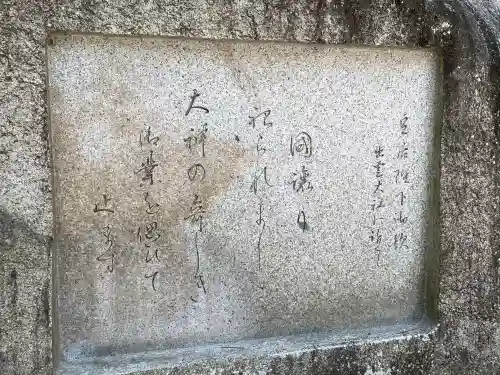 皇后陛下御歌
出雲大社に詣て
國譲り
祀られましし
大神の奇しき
御業を偲びて
止まず